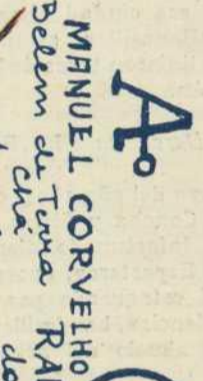 Aº
MANUEL CORVELHO
Belem de Terra RA
chá do